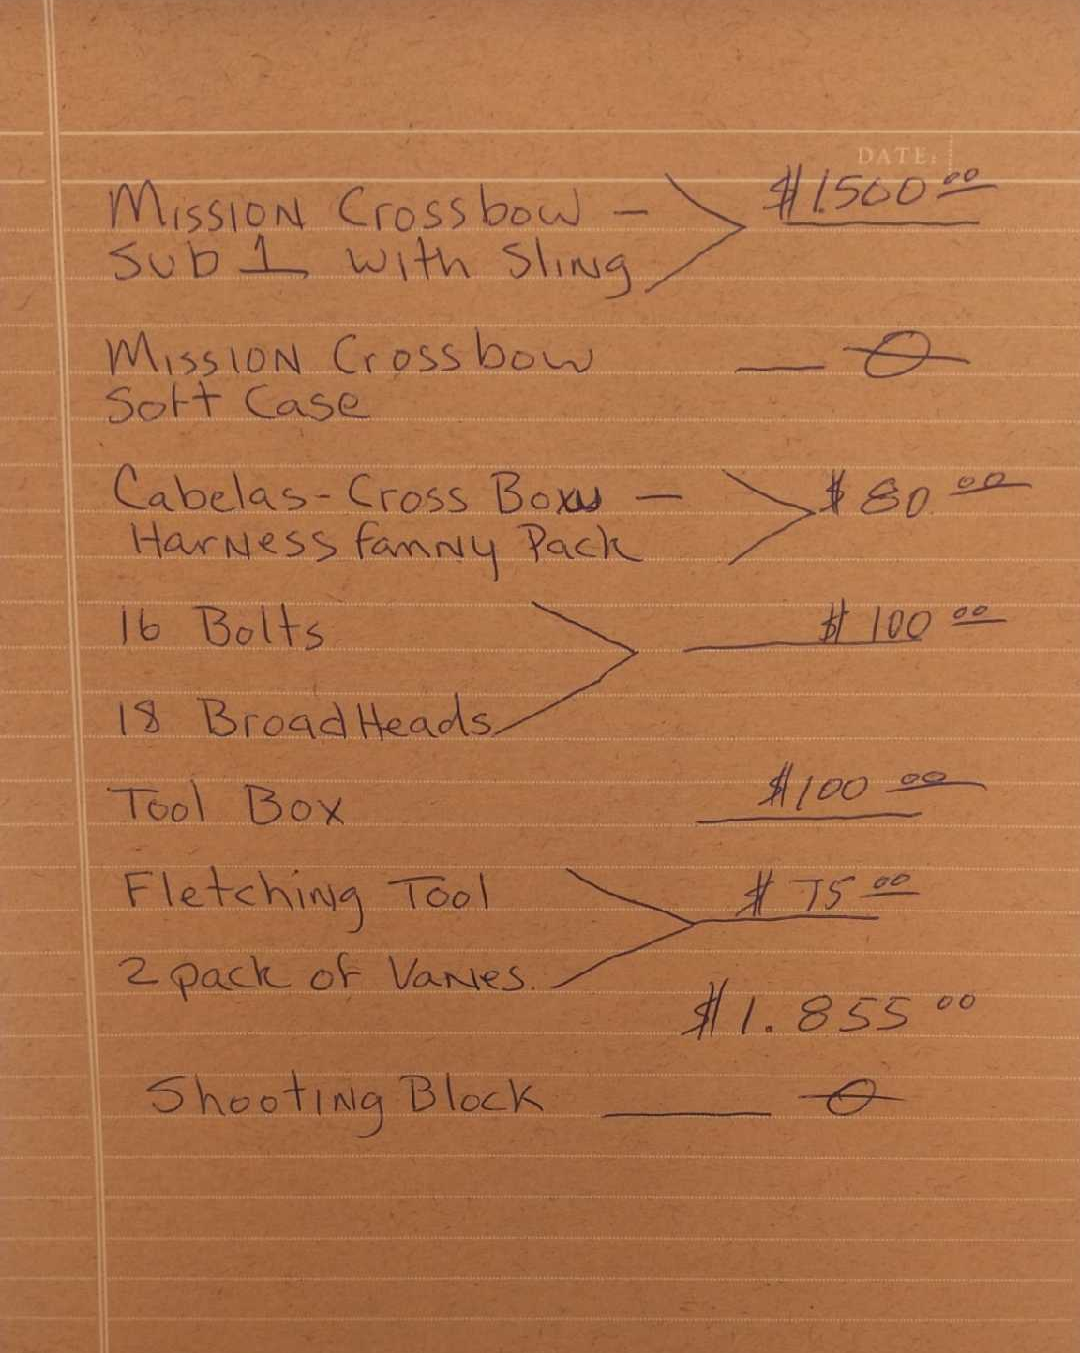 DATE:
Mission Crossbow - $1500.00
Sub 1 with Sling
Mission Crossbow — 0
Soft Case
Cabelas - Cross Bow — $80.00
Harness fanny Pack
16 Bolts $100.00
18 BroadHeads
Tool Box $100.00
Fletching Tool $75.00
2 pack of Vanes.
$1.855 00
Shooting Block — 0